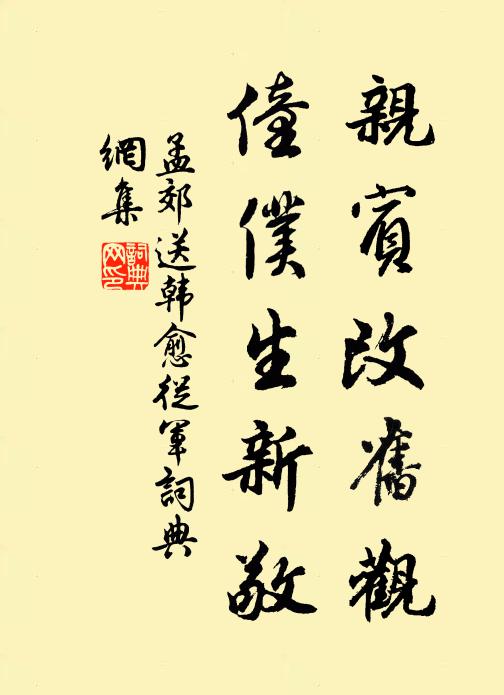 親賓改舊觀
僮僕生新敬
孟郊送韩愈從軍詞典
網集
詞典
网印